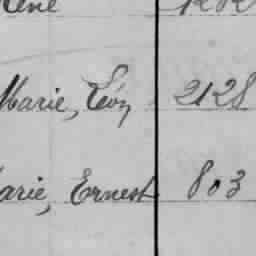 Marie, Léon 2128
arie, Ernest 803